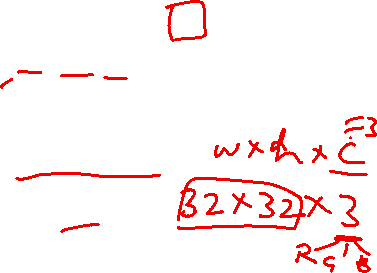 =3
w×h×C
32×32×3
R G B